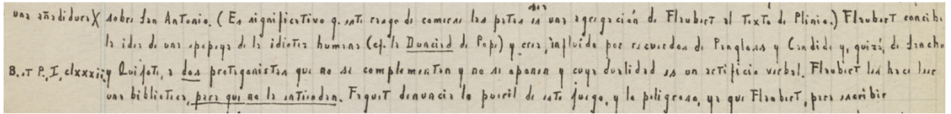 una añadidura X sobre San Antonio. (Es significativo q. este rasgo de comerse las patas es una agregación de Flaubert al Texto de Plinio.) Flaubert concibe
la idea de una epopeya de la idiotez humana (cf. la Dunciad de Pope) y crea, influído por recuerdos de Pangloss y Candide y, quizá, de Sancho
B. et P., I, clxxxii; y Quijote, a dos protagonistas que no se complementan y no se oponen y cuya dualidad es un artificio verbal. Flaubert les hace leer
una biblioteca, para que no la entiendan. Faguet denuncia lo pueril de este juego, y lo peligroso, ya que Flaubert, para escribir